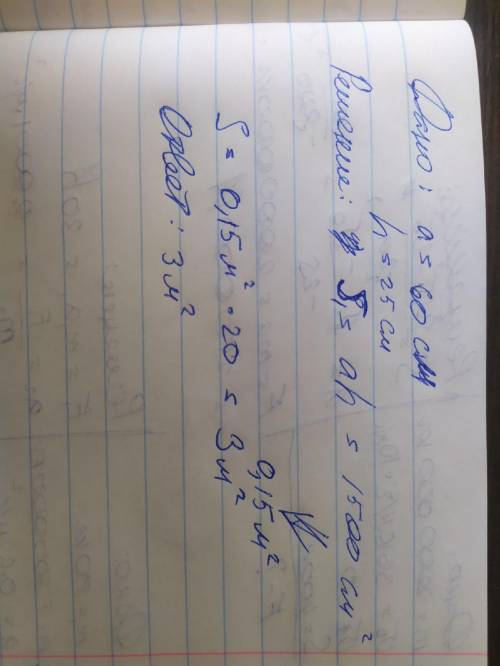 Дано: a = 60 см
h = 25 см
Решение: S₁ = ah = 1500 см²
0,15 м²
S = 0,15 м² · 20 = 3 м²
Ответ: 3 м²